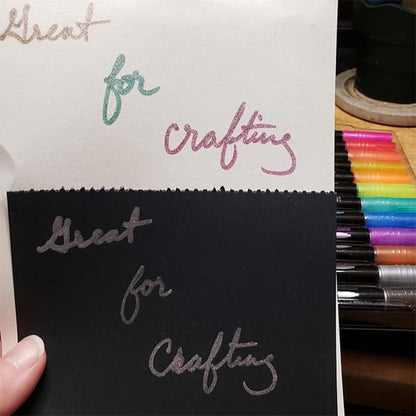 Great
for
crafting
Great
for
Crafting